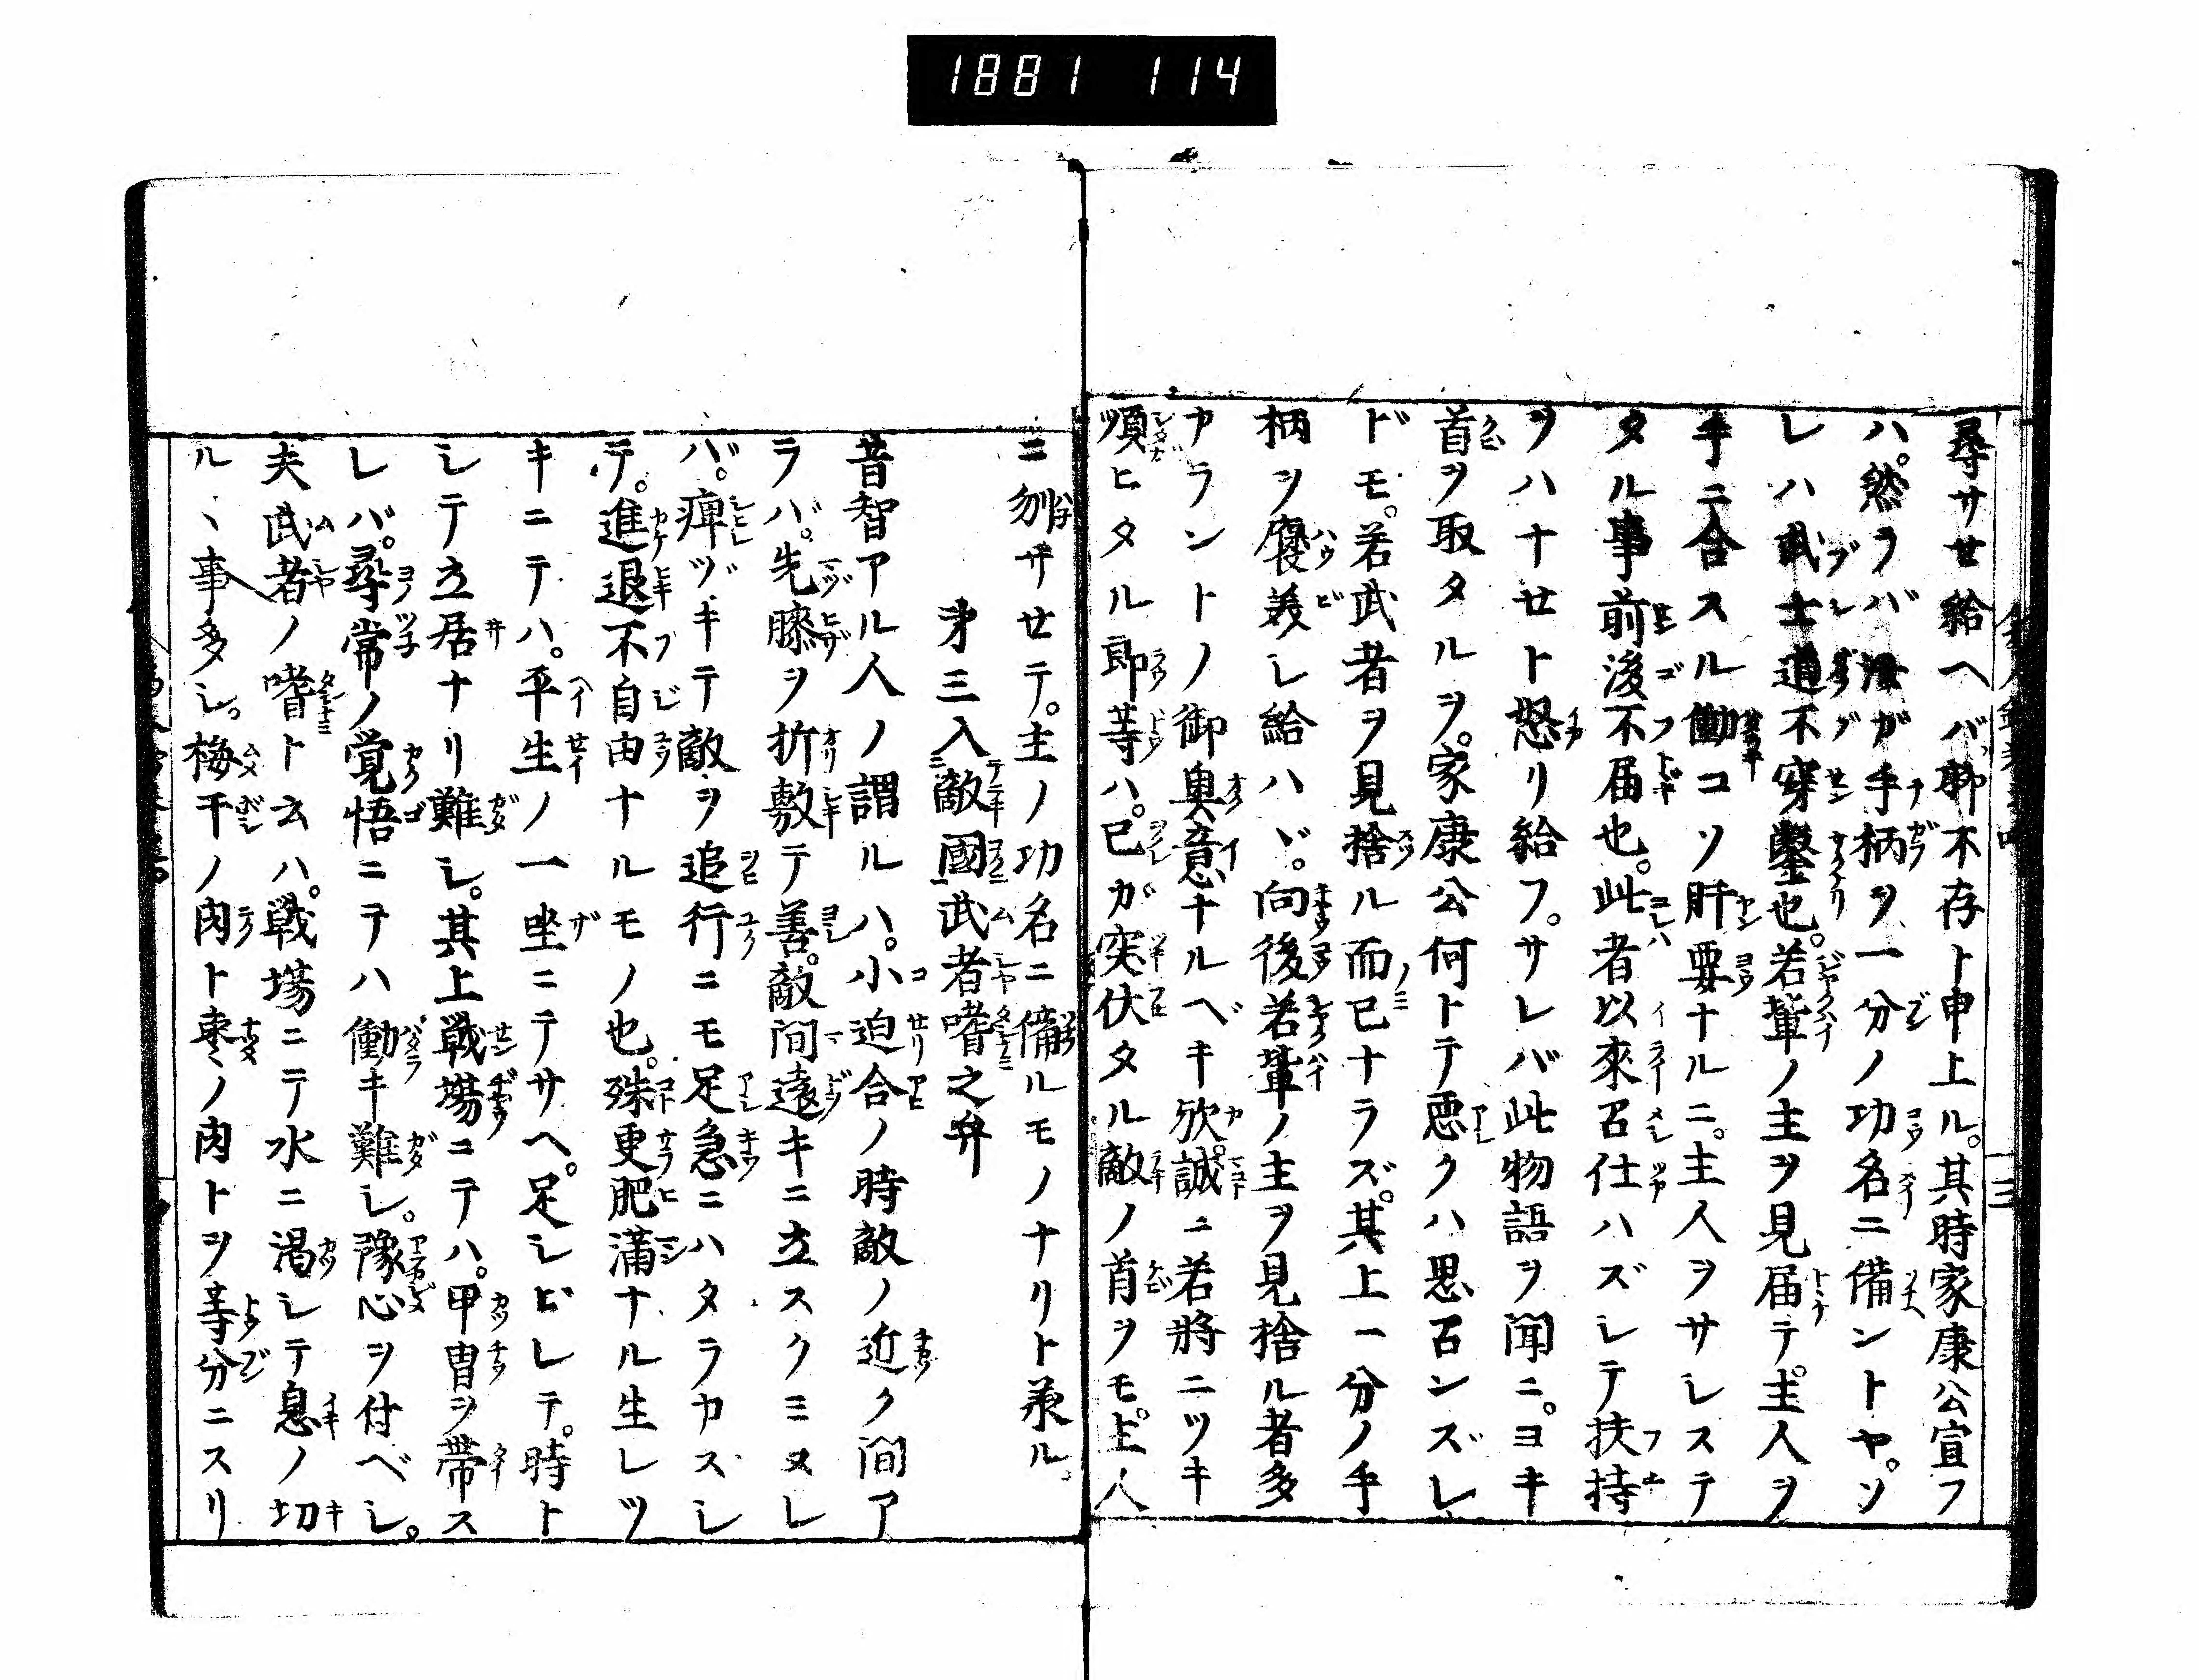 1881 114
尋サセ給ヘバ聊不存ト申上ル。其時家康公宣フ
ハ。然ラバ汝ガ手柄ヲ一分ノ功名ニ備ントヤ。ソ
レハ武士道不穿鑿也。若輩ノ主ヲ見届テ。主人ヲ
手ニ合スル働コソ肝要ナルニ。主人ヲサシステ
タル事前後不届也。此者以來召仕ハズシテ扶持
ヲハナセト怒リ給フ。サレバ此物語ヲ聞ニ。ヨキ
首ヲ取タルヲ。家康公何トテ悪クハ思召ンズレ
ドモ。若武者ヲ見捨ル而已ナラズ。其上一分ノ手
柄ヲ褒美シ給ハヾ。向後若輩ノ主ヲ見捨ル者多
カラントノ御奥意ナルベキ欤。誠ニ若將ニツキ
順ヒタル郎等ハ。己ガ突伏タル敵ノ首ヲモ。主人
ニ刎サセテ。主ノ功名ニ備ルモノナリト承ル。
第三入敵國武者嗜之弁
昔智アル人ノ謂ルハ。小迫合ノ時敵ノ近ク間ア
ラバ。先膝ヲ折敷テ善。敵間遠キニ立スクミヌレ
バ。痺ヅキテ敵ヲ追行ニモ足急ニハタラカズシ
テ。進退不自由ナルモノ也。殊更肥滿ナル生レツ
キニテハ。平生ノ一坐ニテサヘ。足シビレテ。時ト
シテ立居ナリ難シ。其上戦場ニテハ。甲冑ヲ帶ス
レバ。尋常ノ覚悟ニテハ働キ難シ。豫心ヲ付ベシ。
夫武者ノ嗜ト云ハ。戦場ニテ水ニ渇シテ息ノ切
ル、事多シ。梅干ノ肉ト棗ノ肉トヲ等分ニスリ